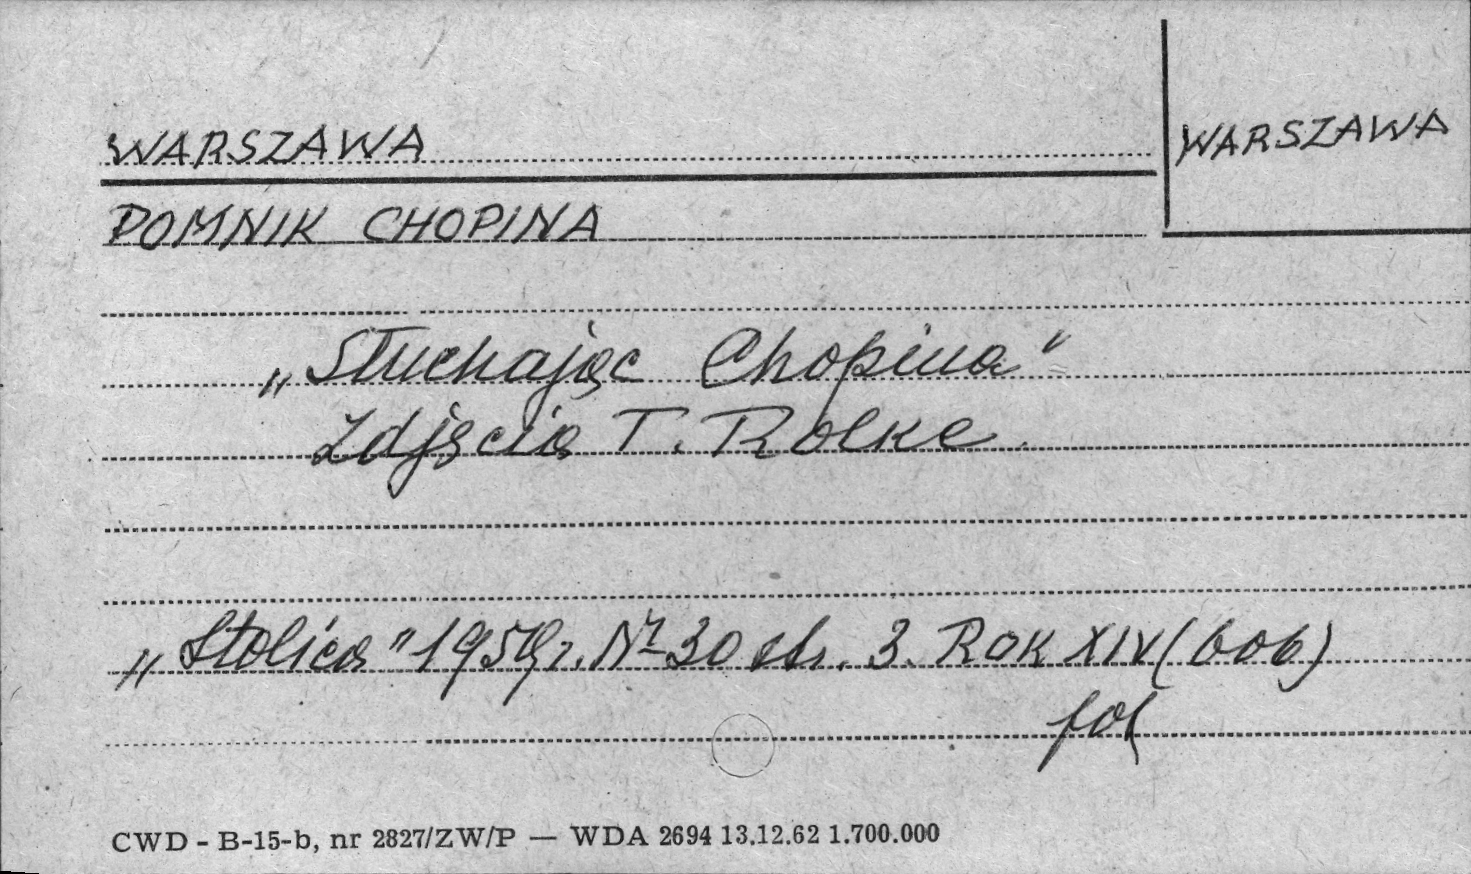 WARSZAWA
WARSZAWA
POMNIK CHOPINA
„Słuchając Chopina"
Zdjęcia T. Rolke.
„Stolica" 1959 r. Nr 30 str. 3. Rok XIV (606)
fot
CWD - B-15-b, nr 2827/ZW/P — WDA 2694 13.12.62 1.700.000